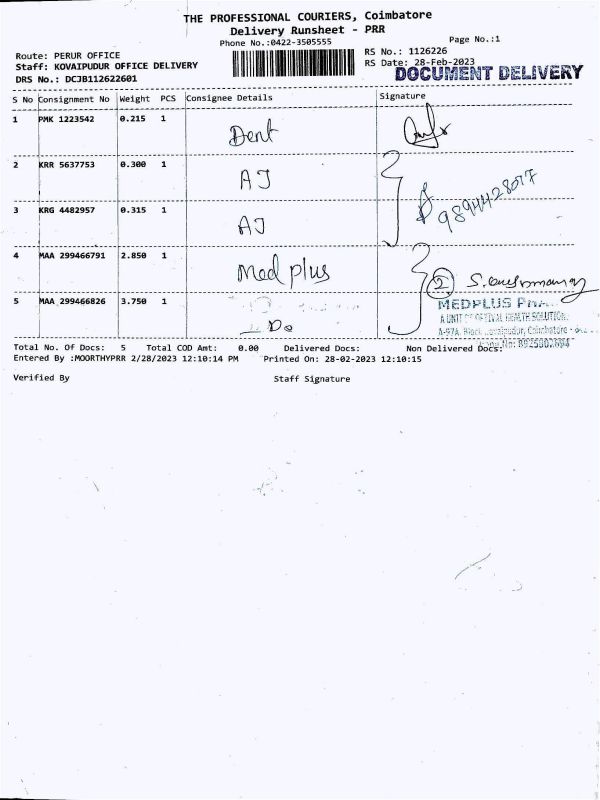 THE PROFESSIONAL COURIERS, Coimbatore
Delivery Runsheet - PRR
Phone No.:0422-3505555
Page No.:1
Route: PERUR OFFICE
RS No.: 1126226
Staff: KOVAIPUDUR OFFICE DELIVERY
RS Date: 28-Feb-2023
DRS No.: DCJB112622601
DOCUMENT DELIVERY
S No Consignment No Weight PCS Consignee Details Signature
1 PMK 1223542 0.215 1 Dent
2 KRR 5637753 0.300 1 AJ
9894428077
3 KRG 4482957 0.315 1 AJ
4 MAA 299466791 2.850 1 Med plus
2
5 MAA 299466826 3.750 1 Do
MEDPLUS
A UNIT HEALTH SOLUTION
A-97A, Block Coimbatore
Total No. Of Docs: 5 Total COD Amt: 0.00 Delivered Docs: Non Delivered Docs:
Entered By :MOORTHYPRR 2/28/2023 12:10:14 PM Printed On: 28-02-2023 12:10:15
Verified By Staff Signature